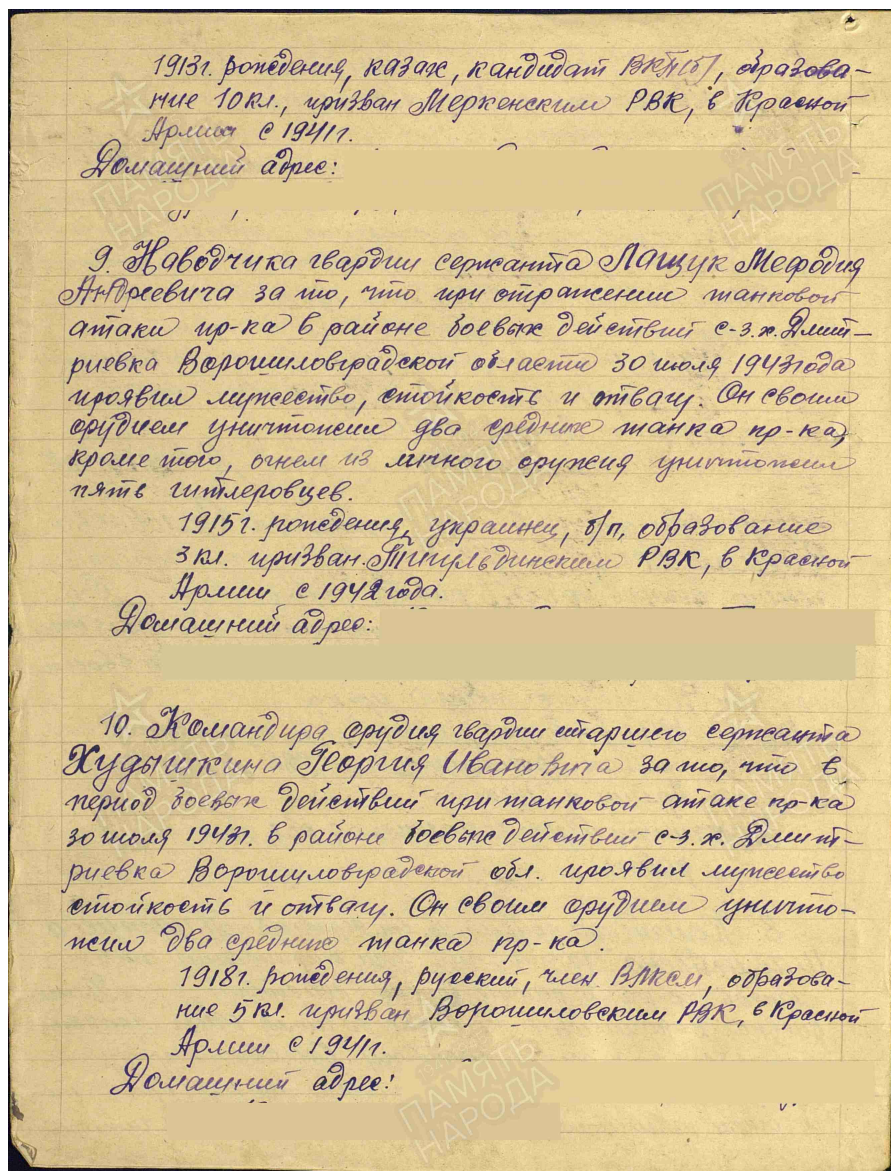 1913г. рождения, казах, кандидат ВКП(б), образова-
ние 10кл., призван Меркенским РВК, в Красной
Армии с 1941г.
Домашний адрес:
9. Наводчика гвардии сержанта Лащук Мефодия
Андреевича за то, что при отражении танковой
атаки пр-ка в районе боевых действий с-з.х. Дмит-
риевка Ворошиловградской области 30 июля 1943 года
проявил мужество, стойкость и отвагу. Он своим
орудием уничтожил два средних танка пр-ка,
кроме того, огнем из личного оружия уничтожил
пять гитлеровцев.
1915г. рождения, украинец, б/п, образование
3кл. призван РВК, в Красной
Армии с 1942 года.
Домашний адрес:
10. Командира орудия гвардии старшего сержанта
Худышкина Георгия Ивановича за то, что в
период боевых действий при танковой атаке пр-ка
30 июля 1943г. в районе боевых действий с-з.х. Дмит-
риевка Ворошиловградской обл. проявил мужество
стойкость и отвагу. Он своим орудием уничто-
жил два средних танка пр-ка.
1918г. рождения, русский, член ВЛКСМ, образова-
ние 5кл. призван Ворошиловским РВК, в Красной
Армии с 1941г.
Домашний адрес:
ПАМЯТЬ
НАРОДА